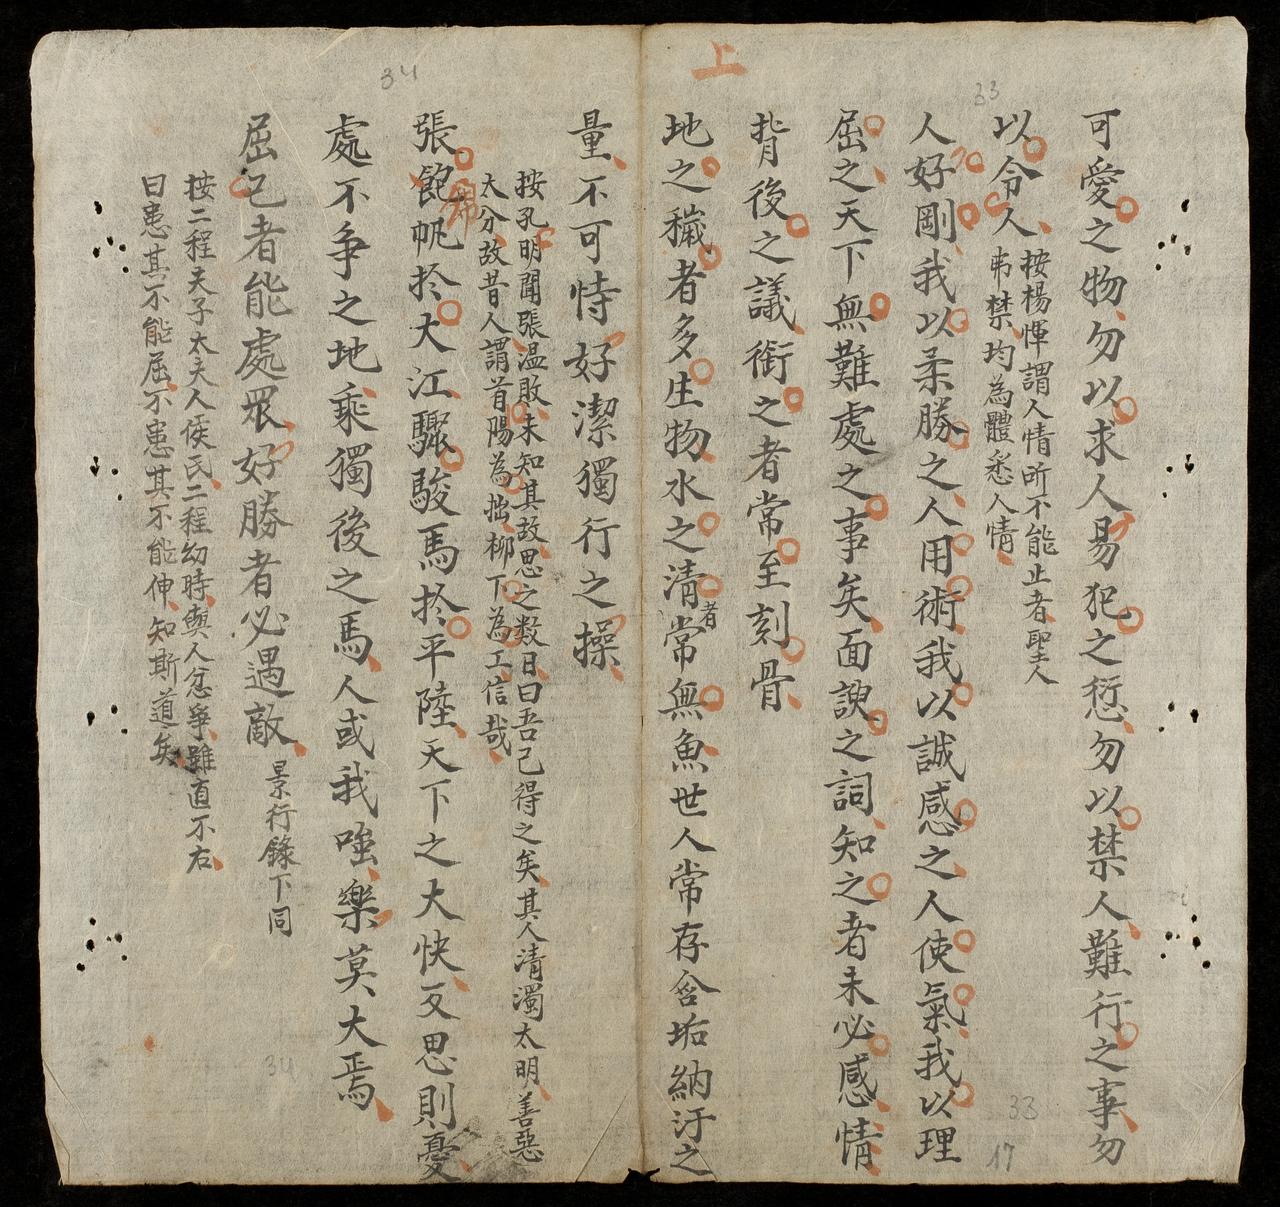 上
33
可愛之物勿以求人易犯之愆勿以禁人難行之事勿
以令人
按楊惲謂人情所不能止者聖人
弗禁均為體悉人情
人好剛我以柔勝之人用術我以誠感之人使氣我以理
屈之天下無難處之事矣面諛之詞知之者未必感情
背後之議銜之者常至刻骨
地之穢者多生物水之清者常無魚世人常存含垢納汙之
33
17
34
量不可恃好潔獨行之操
按孔明聞張温敗未知其故思之数日曰吾已得之矣其人清濁太明善惡
太分故昔人謂首陽為拙柳下為工信哉
張飽帆於大江驟駿馬於平陸天下之大快反思則憂
帰
處不争之地乘獨後之馬人或我嗤樂莫大焉
屈己者能處眾好勝者必遇敵
景行錄下同
按二程夫子太夫人侯氏二程幼時與人忿爭雖直不右
曰患其不能屈不患其不能伸知斯道矣
34